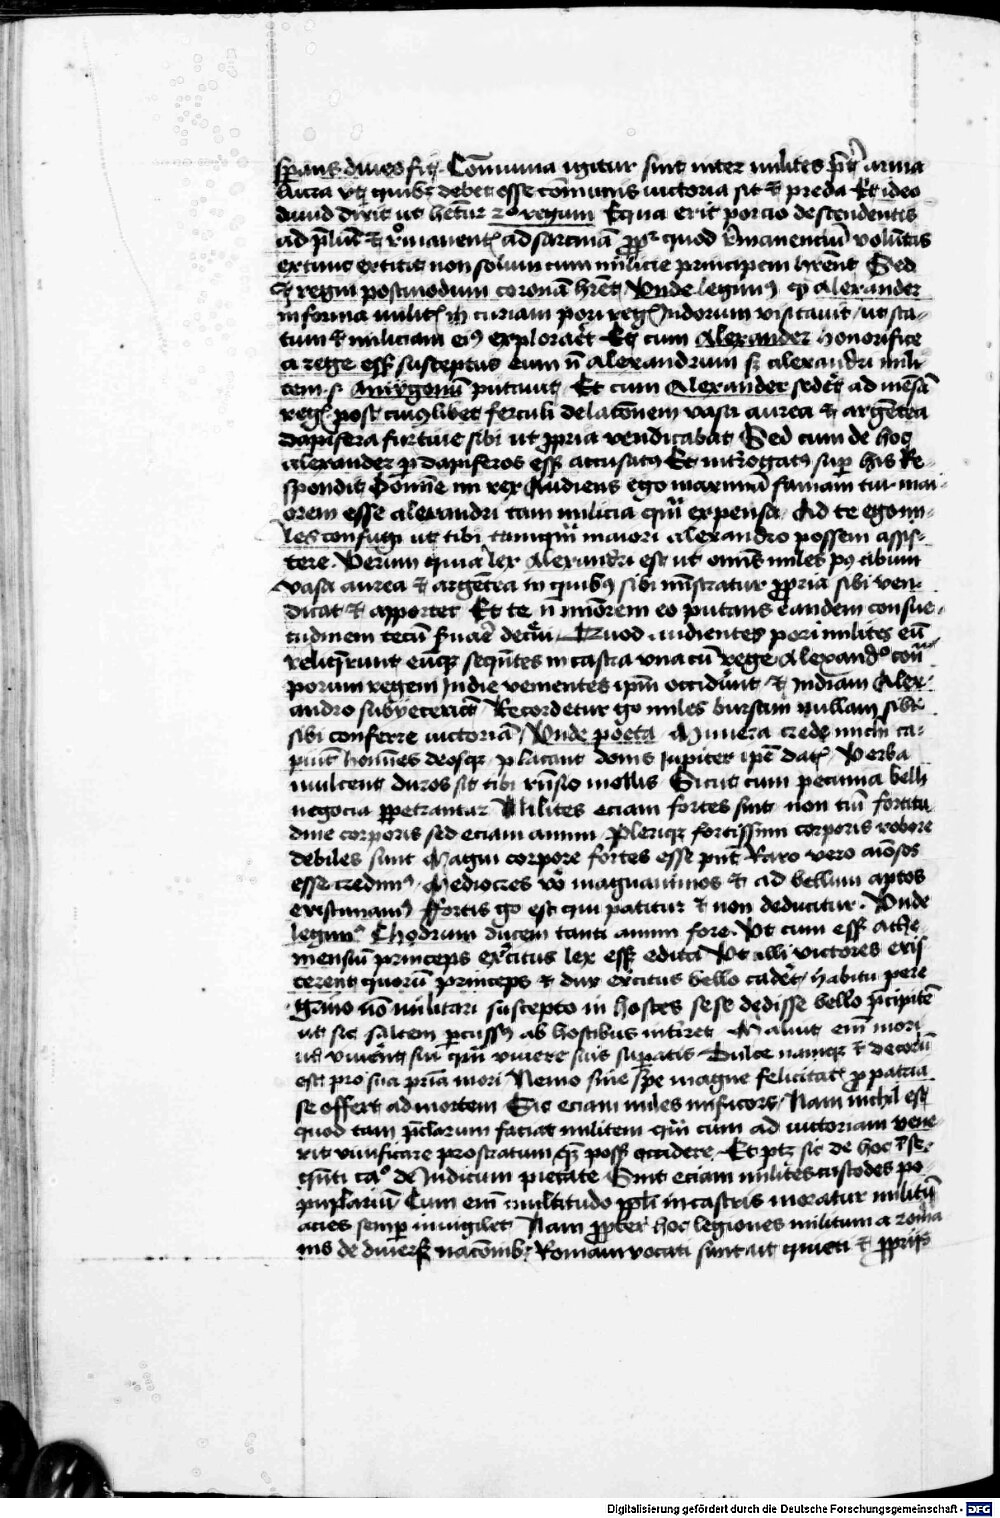 spans dives fit. Cōmunia igitur sint inter milites p̄t arma
iura ut quibꝫ debet esse cōmunis victoria sit et preda Et ideo
dauid dixit ut hētur 2o regum Equa erit porcio descendentis
ad p̄liū et remanentꝭ ad sarcinā ꝓpt̄ quod r̄manenciū volūtas
extunc extitit non solum cum milicie principem hr̄ent Sed
et regni postmodum coronā hr̄et Vnde legimꝰ qꝫ alexander
in forma militꝭ in curiam pori regꝭ Indorum visitavit ut sta-
tum et miliciam eiꝰ exploraret Et cum Alexander honorifice
a rege esset susceptus eum nō alexandrum sꝫ alexandri mili
tem s. Antigonū putavit Et cum Alexander sederet ad mēsā
regꝭ post cuiꝰlibet ferculi delacōnem vasa aurea et argētea
dapifera furtive sibi ut ꝓpria vendicabat Sed cum de hoc
alexander ꝑ dapiferos esset accusatꝰ Et int̄rogatꝰ suꝑ his Re-
spondit Domīe mi rex Audiens ego maximā famam tui mai-
orem esse alexandri tam milicia qūm expensa Ad te ego mi-
les confugi ut tibi tamqūm maiori alexandro possem assis-
tere. Verum quia lex Alexandri est ut omīs miles pꝰ cibum
vasa aurea et argētea in quibꝰ sibi mīstratur ꝓpria sibi ven-
dicat et apportet Et te nō miōrem eo putans eandem consue-
tudinem tecū s̄uaē decrevi Quod audientes pori milites eū
reliq̄runt eūqꝫ seq̄ntes in castra vna cū rege Alexandº cōtra
porum regem Indie venientes ipm̄ occidūnt et Indiam Alex-
andro subyecerūt Recordetur go miles bursam nullam sibi
sibi conferre victoriā Vnde poeta Munera crede michi ca-
piūt hoīnes deosqꝫ placatur donis Iupiter ipē datꝭ Verba
mulcent duros sit tibi rn̄sio mollis Sicut cum pecunia belli
negocia ꝑpetrantur Milites eciam fortes sint non tm̄ fortitu
dine corporis sed eciam animi Pleriqꝫ fortissimi corporis robore
debiles sunt Magni corpore fortes esse pn̄t Raro vero aīosos
esse credimꝰ Mediocres vo magnanimos et ad bellum aptos
existimamꝰ Ffortis go est qui patitur et non deducitur. Vnde
legimꝰ Chodrum ducem tanti animi fore. Vt cum esset Athe
niensiū princeps ex̄citus lex esset edita Vt illi victores exis
terent quorū princeps et dux exercitus bello cadet habitu pere
grino nō militari suscepto in hostes sese dedisse bello p̄cipitē
ut sic saltem ꝑcussꝰ ab hostibus int̄iret Maluit em̄ mori
ut vivēnt sui qūm vivere suis suꝑatis Dulce namqꝫ et decorū
est pro sua pr̄ia mori Nemo sine spe magne felicitatꝭ ꝓ patria
se offert ad mortem Sic eciam miles mīsericors Nam nichil est
quod tam p̄clarum faciat militem qūm cum ad victoriam vene-
rit vivificare prostratum qꝫ posset occidere Et ptꝫ sic de hoc ī se-
q̄nti caº de Iudicum pietate Sint eciam milites custodes po-
pularium Cum em̄ multitudo ppli in castris moratur militū
acies semꝑ invigilet Nam ꝓpter hoc legiones militum a roma
nis de diversꝭ nacōnibꝫ Romam vocati sunt ut quieti et ꝓprijs
Digitalisierung gefördert durch die Deutsche Forschungsgemeinschaft - DFG